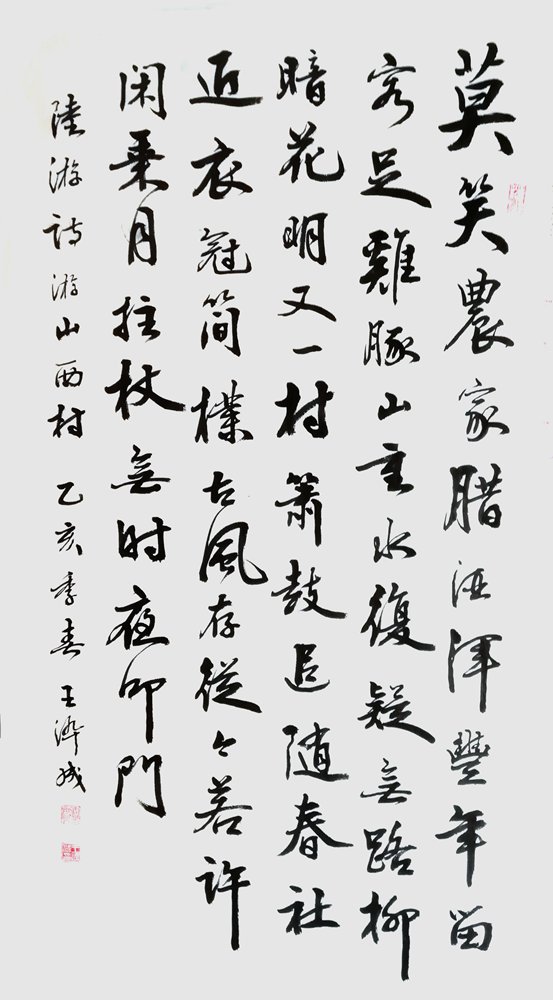 莫笑農家腊酒渾豐年留
客足雞豚山重水復疑無路柳
暗花明又一村簫鼓追随春社
近衣冠簡樸古風存從今若許
閑乘月拄杖無时夜叩門
陸游诗游山西村 乙亥季春 王